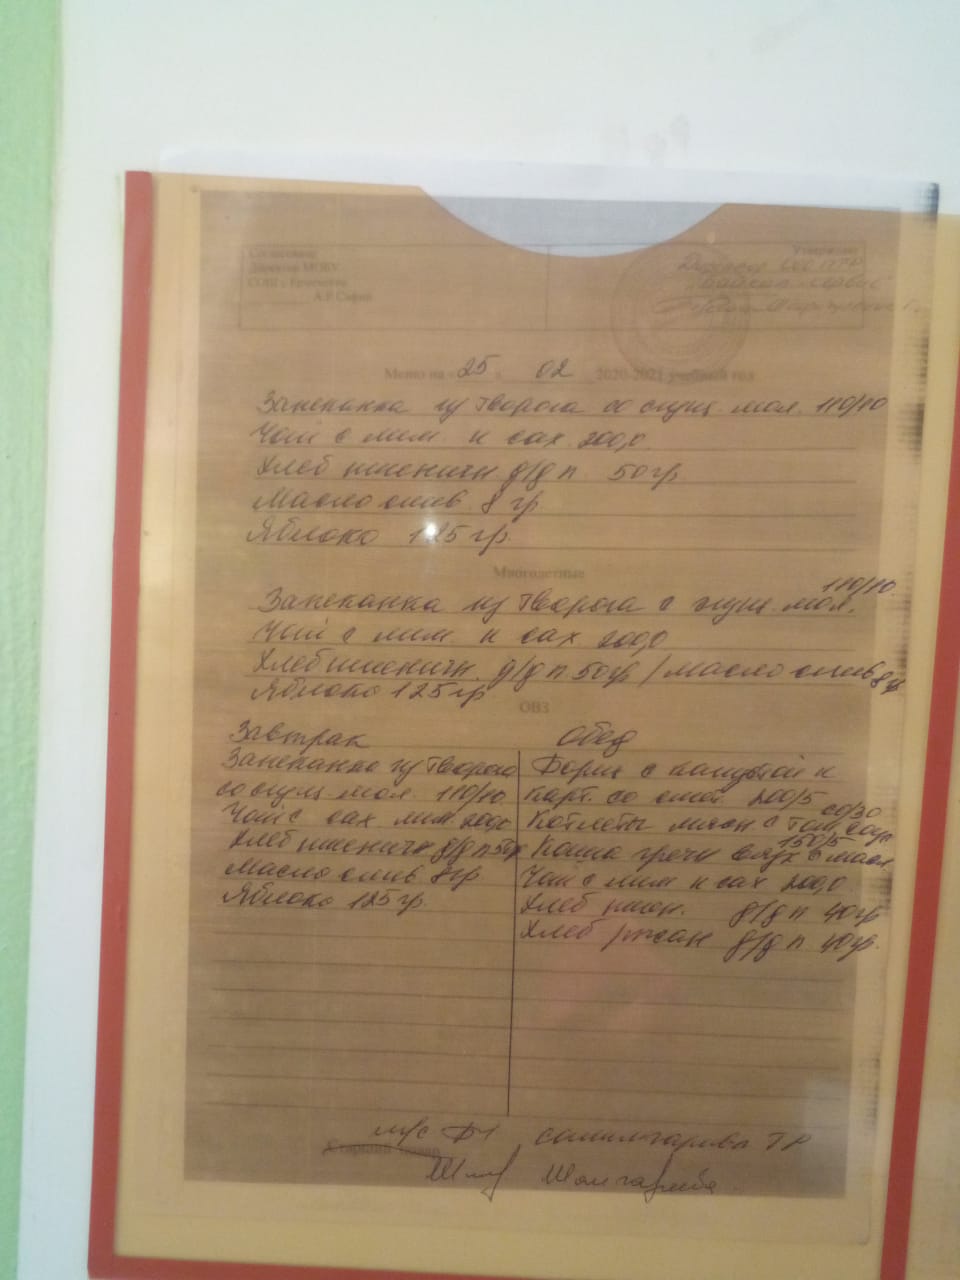 Согласовано
Утверждаю
Директор МОБУ
Директор ООО
СОШ с Ермекеево
сервис
А.Р. Сафин
Меню на «25» 02 2020-2021 учебный год
Запеканка из творога со сгущ. мол. 110/10
Чай с лим. и сах. 200,0
Хлеб пшеничн д/д п. 50 гр
Масло слив. 8 гр
Яблоко 125 гр.
Многодетные
Запеканка из творога с сгущ. мол. 110/10
Чай с лим. и сах. 200,0
Хлеб пшеничн. д/д п. 50гр / масло слив 8 гр
Яблоко 125 гр
ОВЗ
Завтрак
Запеканка из творога
со сгущ мол. 110/10
Чай с сах. лим. 200,0
Хлеб пшеничн д/д п 50гр
Масло слив 8гр
Яблоко 125 гр.
Обед
Борщ с капустой и
карт. со смет. 200/5
Котлеты мясн с том. соус 50/30
Каша гречн вязк с масл. 150/5
Чай с лим и сах 200,0
Хлеб пшен. д/д п 40 гр
Хлеб ржан д/д п. 40гр.
м/с
Старший повар